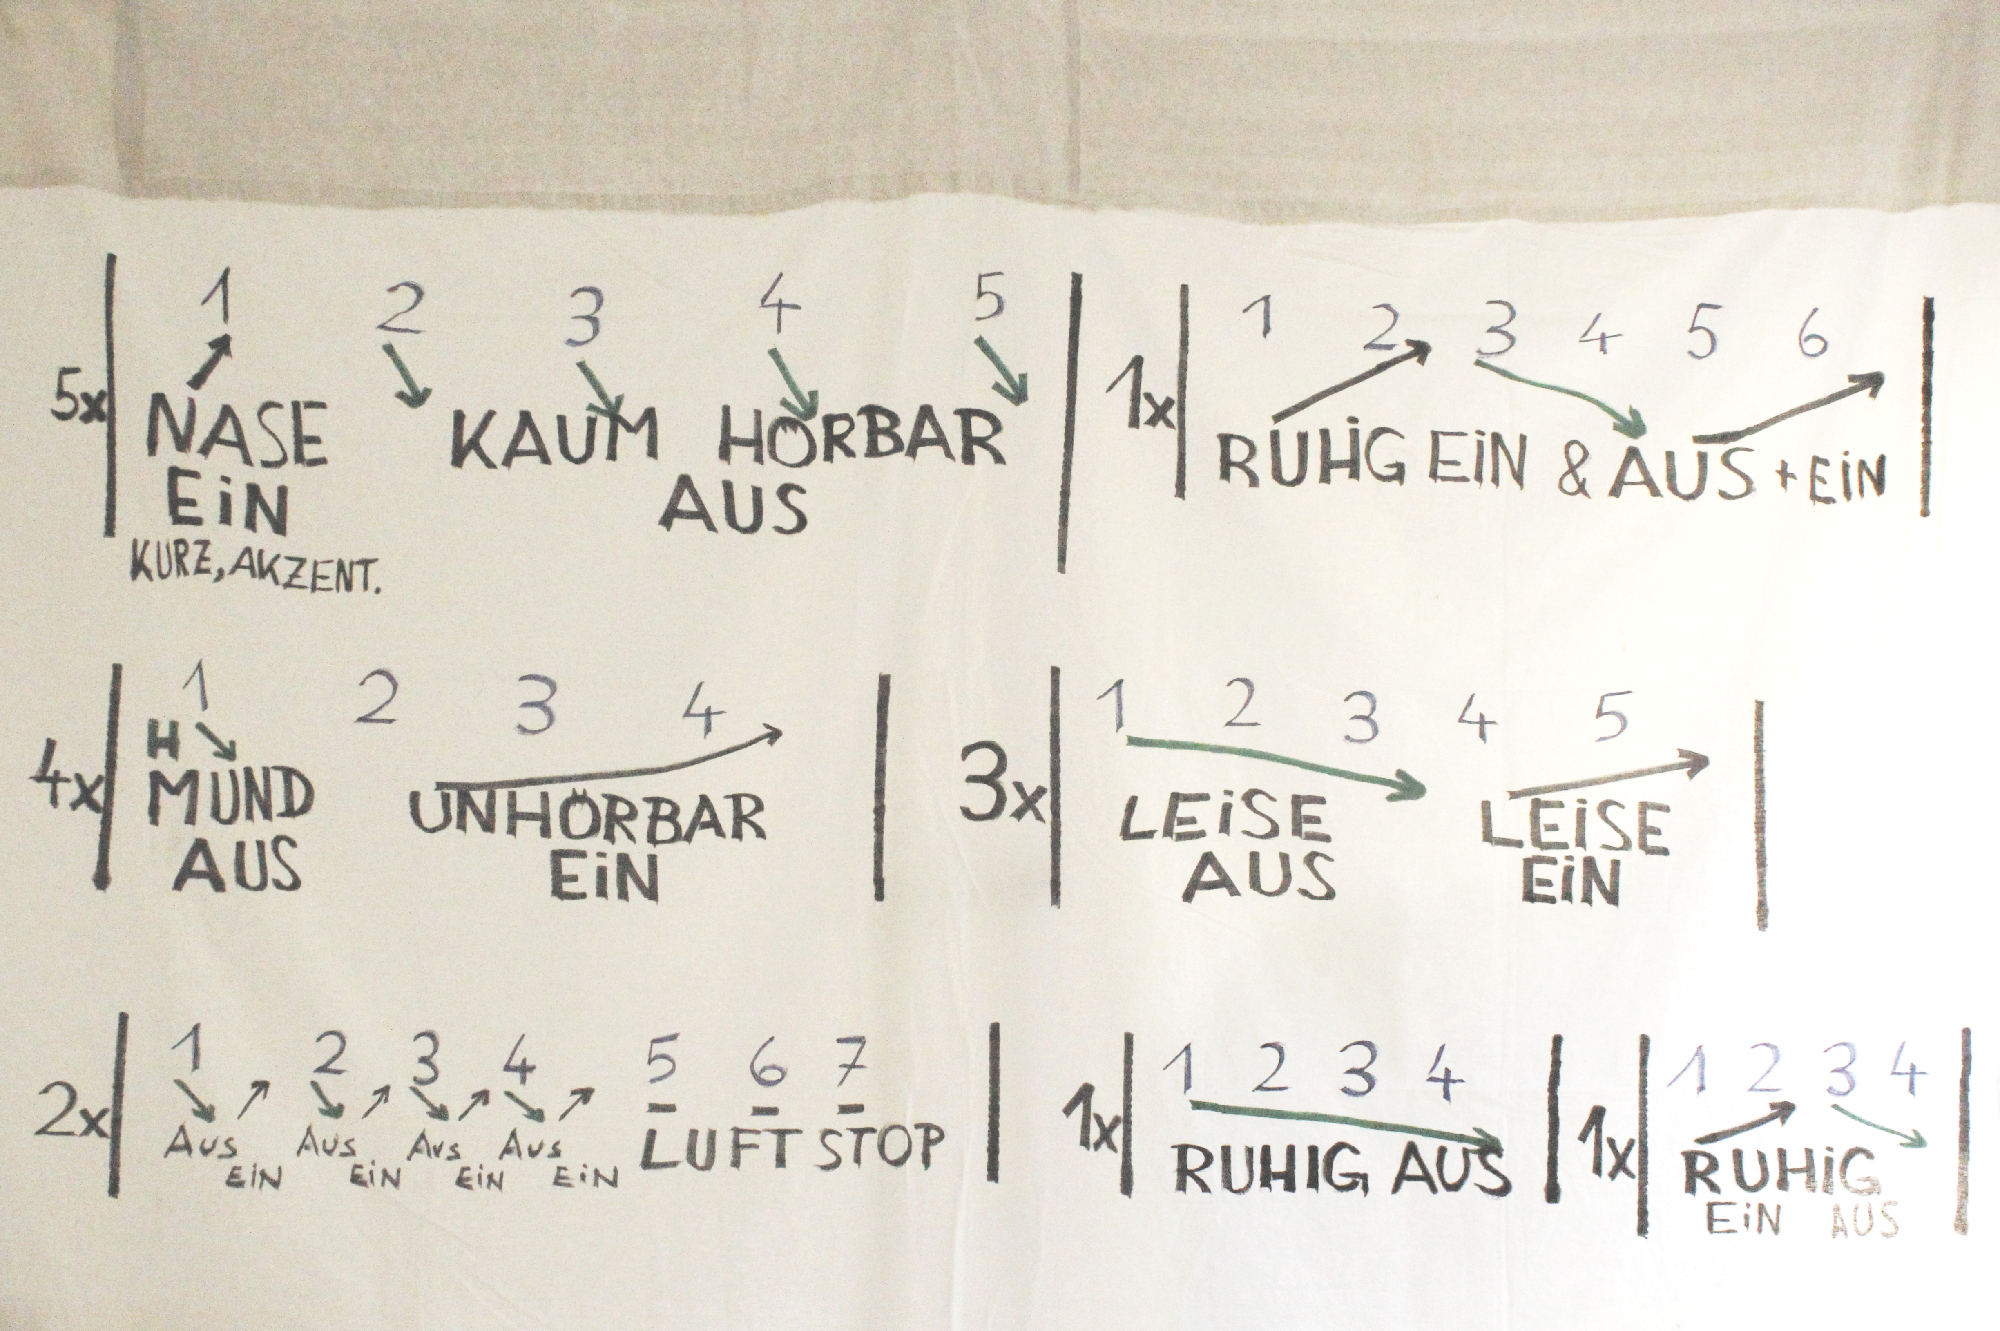 1 2 3 4 5
5x NASE KAUM HÖRBAR
EiN AUS
KURZ, AKZENT.
1 2 3 4 5 6
1x RUHiG EiN & AUS + EiN
1 2 3 4
H
4x MUND UNHÖRBAR
AUS EiN
1 2 3 4 5
3x LEiSE LEiSE
AUS EiN
1 2 3 4 5 6 7
2x AUS EiN AUS EiN AUS EiN AUS EiN LUFT STOP
1 2 3 4
1x RUHIG AUS
1 2 3 4
1x RUHiG
EiN AUS